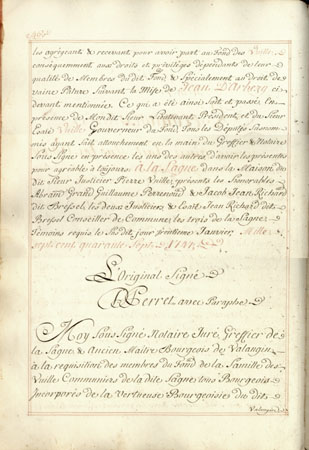 les agrégeant & recevant pour avoir part au Fond des Vuille
conséquemment aux droits et privilèges dépendants de leur
qualité de Membres du dit Fond, & Spécialement au droit de
vaine Pature Suivant la Mise de Jean D'Arberg ci
devant mentionnée. Ce qui a été ainsi fait et passé, En
présence de Mondit Sieur Lieutenant Président, et du Sieur
Esaïe Vuille Gouverneur du Fond, Tous les Députés Susnom
més ayant fait attouchement en la main du Greffier & Notaire
Sous Signé en présence les uns des autres d'avoir les présentes
pour agréable à toujours. à la Sagne dans la Maison du
dit Sieur Justicier Pierre Vuille, présents les Honorables
Abram Grand Guillaume Perrenoud & Jacob Jean Richard
dit Bressel, les deux Justiciers & Esaïe Jean Richard dit
Bressel Conseiller de Commune, les trois de la Sagne
Témoins requis le Susdit jour Janvier, Mille
sept cent quarante Sept. 1747.
L'Original Signé
Perret avec Paraphe
Moy Sous Signé Notaire Juré Greffier de
la Sagne & Ancien Maître Bourgeois de Valangin
à la requisition des membres du Fond de la Famille des
Vuille Communiers de la dite Sagne tous Bourgeois
Incorporés de la Vertueuse Bourgeoisie du dit
Valangin